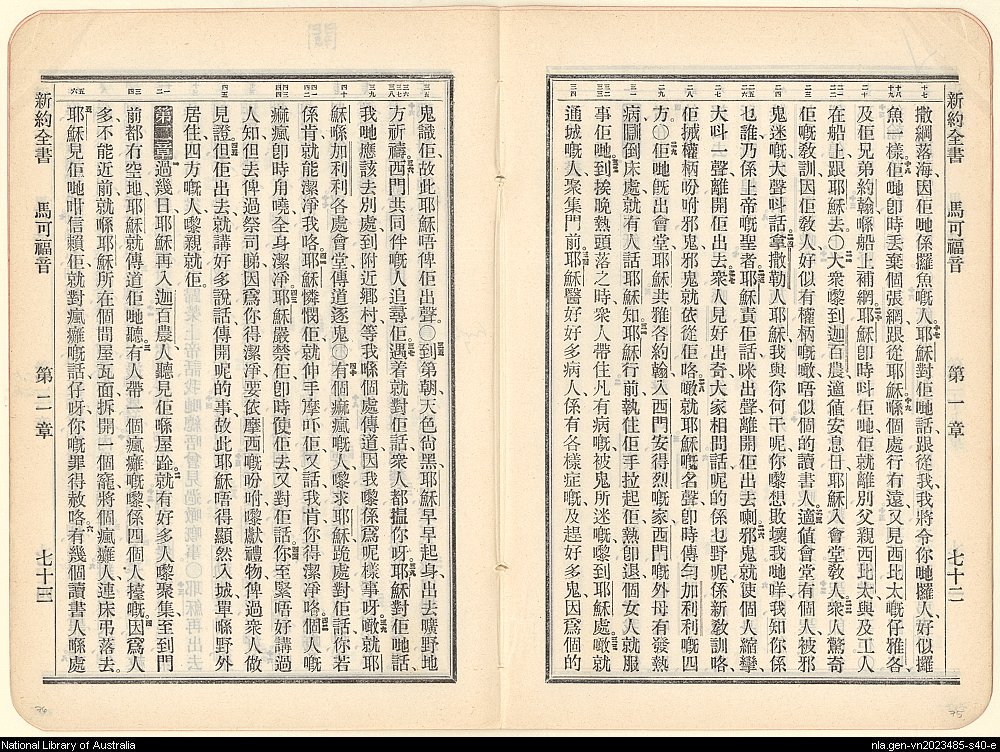 新約全書 馬可福音 第一章 七十二
撒綱落海、因佢哋係攞魚嘅人、耶穌對佢哋話、跟從我、我將令你哋攞人、好似攞
魚一樣、佢哋卽時丟棄個張網、跟從耶穌、喺個處行有遠、又見西比太嘅仔雅各、
及佢兄弟約翰、喺船上補網、耶穌卽時呌佢哋、佢就離別父親西比太、與及工人
在船上、跟耶穌去〇大衆嚟到迦百農、適値安息日、耶穌入會堂敎人、衆人驚奇
佢嘅敎訓、因佢敎人好似有權柄嘅噉、唔似個的讀書人、適値會堂有個人被邪
鬼迷嘅、大聲呌話、拿撒勒人耶穌、我與你何干呢、你嚟想敗壞我哋咩、我知你係
乜誰、乃係上帝嘅聖者、耶穌責佢話、咪出聲、離開佢出去喇、邪鬼就使個人縮攣
大呌一聲、離開佢出去、衆人見好出奇、大家相問話、呢的係乜野呢、係新敎訓咯、
佢權柄吩咐邪鬼、邪鬼就依從佢咯、噉就耶穌嘅名聲、卽時傳勻加利利嘅四
方〇佢哋旣出會堂、耶穌共雅各約翰、入西門安得烈嘅家、西門嘅外母有發熱
病、瞓倒床處、就有人話耶穌知、耶穌行前執住佢手拉起佢、熱卽退、個女人就服
事佢哋、到挨晚熱頭落之時、衆人帶住凡有病嘅、被鬼所迷嘅、嚟到耶穌處、噉就
通城嘅人、聚集門前、耶穌醫好好多病人、係有各樣症嘅、及趕好多鬼、因爲個的
鬼識佢、故此耶穌唔俾佢出聲〇到第朝天色尙黑、耶穌早早起身、出去曠野地
方祈禱、西門共同伴嘅人追尋佢、遇着就對佢話、衆人都搵你呀、耶穌對佢哋話、
我哋應該去別處、到附近鄉村等我喺個處傳道、因我嚟係爲呢樣事呀、噉就耶
穌喺加利利各處會堂傳道逐鬼〇有個痲瘋嘅人、嚟求耶穌、跪處對佢話、你若
係肯、就能潔淨我咯、耶穌憐憫佢、就伸手摩吓佢、又話、我肯你得潔淨咯、個人嘅
痲瘋卽時甪嘵、全身潔淨、耶穌嚴禁佢、卽時使佢去、又對佢話、你至緊唔好講過
人知、但去俾過祭司睇、因爲你得潔淨、要依摩西嘅吩咐嚟獻禮物、俾過衆人做
見證、但佢出去、就講好多說話、傳開呢的事、故此耶穌唔得顯然入城、單喺野外
居住、四方嘅人嚟親就佢。
第二章 過幾日、耶穌再入迦百農、人聽見佢喺屋跧、就有好多人嚟聚集、至到門
前都有空地、耶穌就傳道佢哋聽、有人帶一個瘋癱嘅嚟、係四個人擡嘅、因爲人
多不能近前、就喺耶穌所在個間屋瓦面、拆開一個窿、將個瘋癱人連床弔落去、
耶穌見佢哋咁信賴佢、就對瘋癱嘅話、仔呀、你嘅罪得赦咯、有幾個讀書人喺處
新約全書 馬可福音 第二章 七十三
76
75
National Library of Australia
nla.gen-vn2023485-s40-e